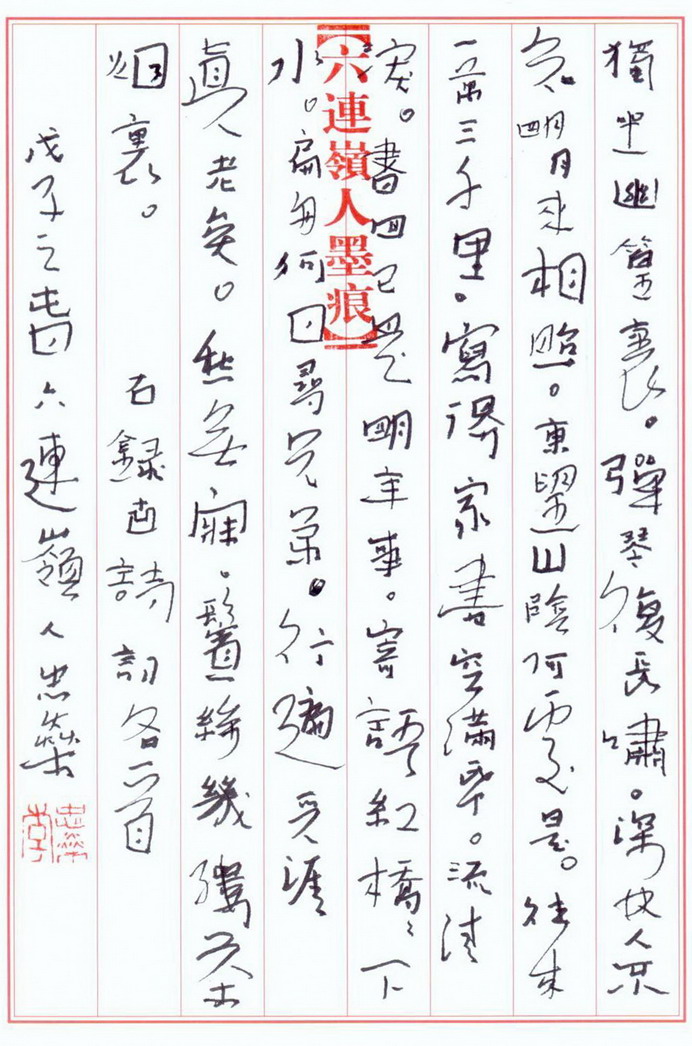 獨坐幽篁裏。彈琴復長嘯。深林人不
知。明月來相照。東望山陰何處是。往來
一萬三千里。寫得家書空滿紙。流清
淚。書回已是明年事。寄語紅橋〻下
水。扁舟何日尋兄弟。行遍天涯
真老矣。愁無寐。鬢絲幾縷茶
烟裏。
右錄古詩詞各一首
戊子之旾六連嶺人忠
【六連嶺人墨痕】